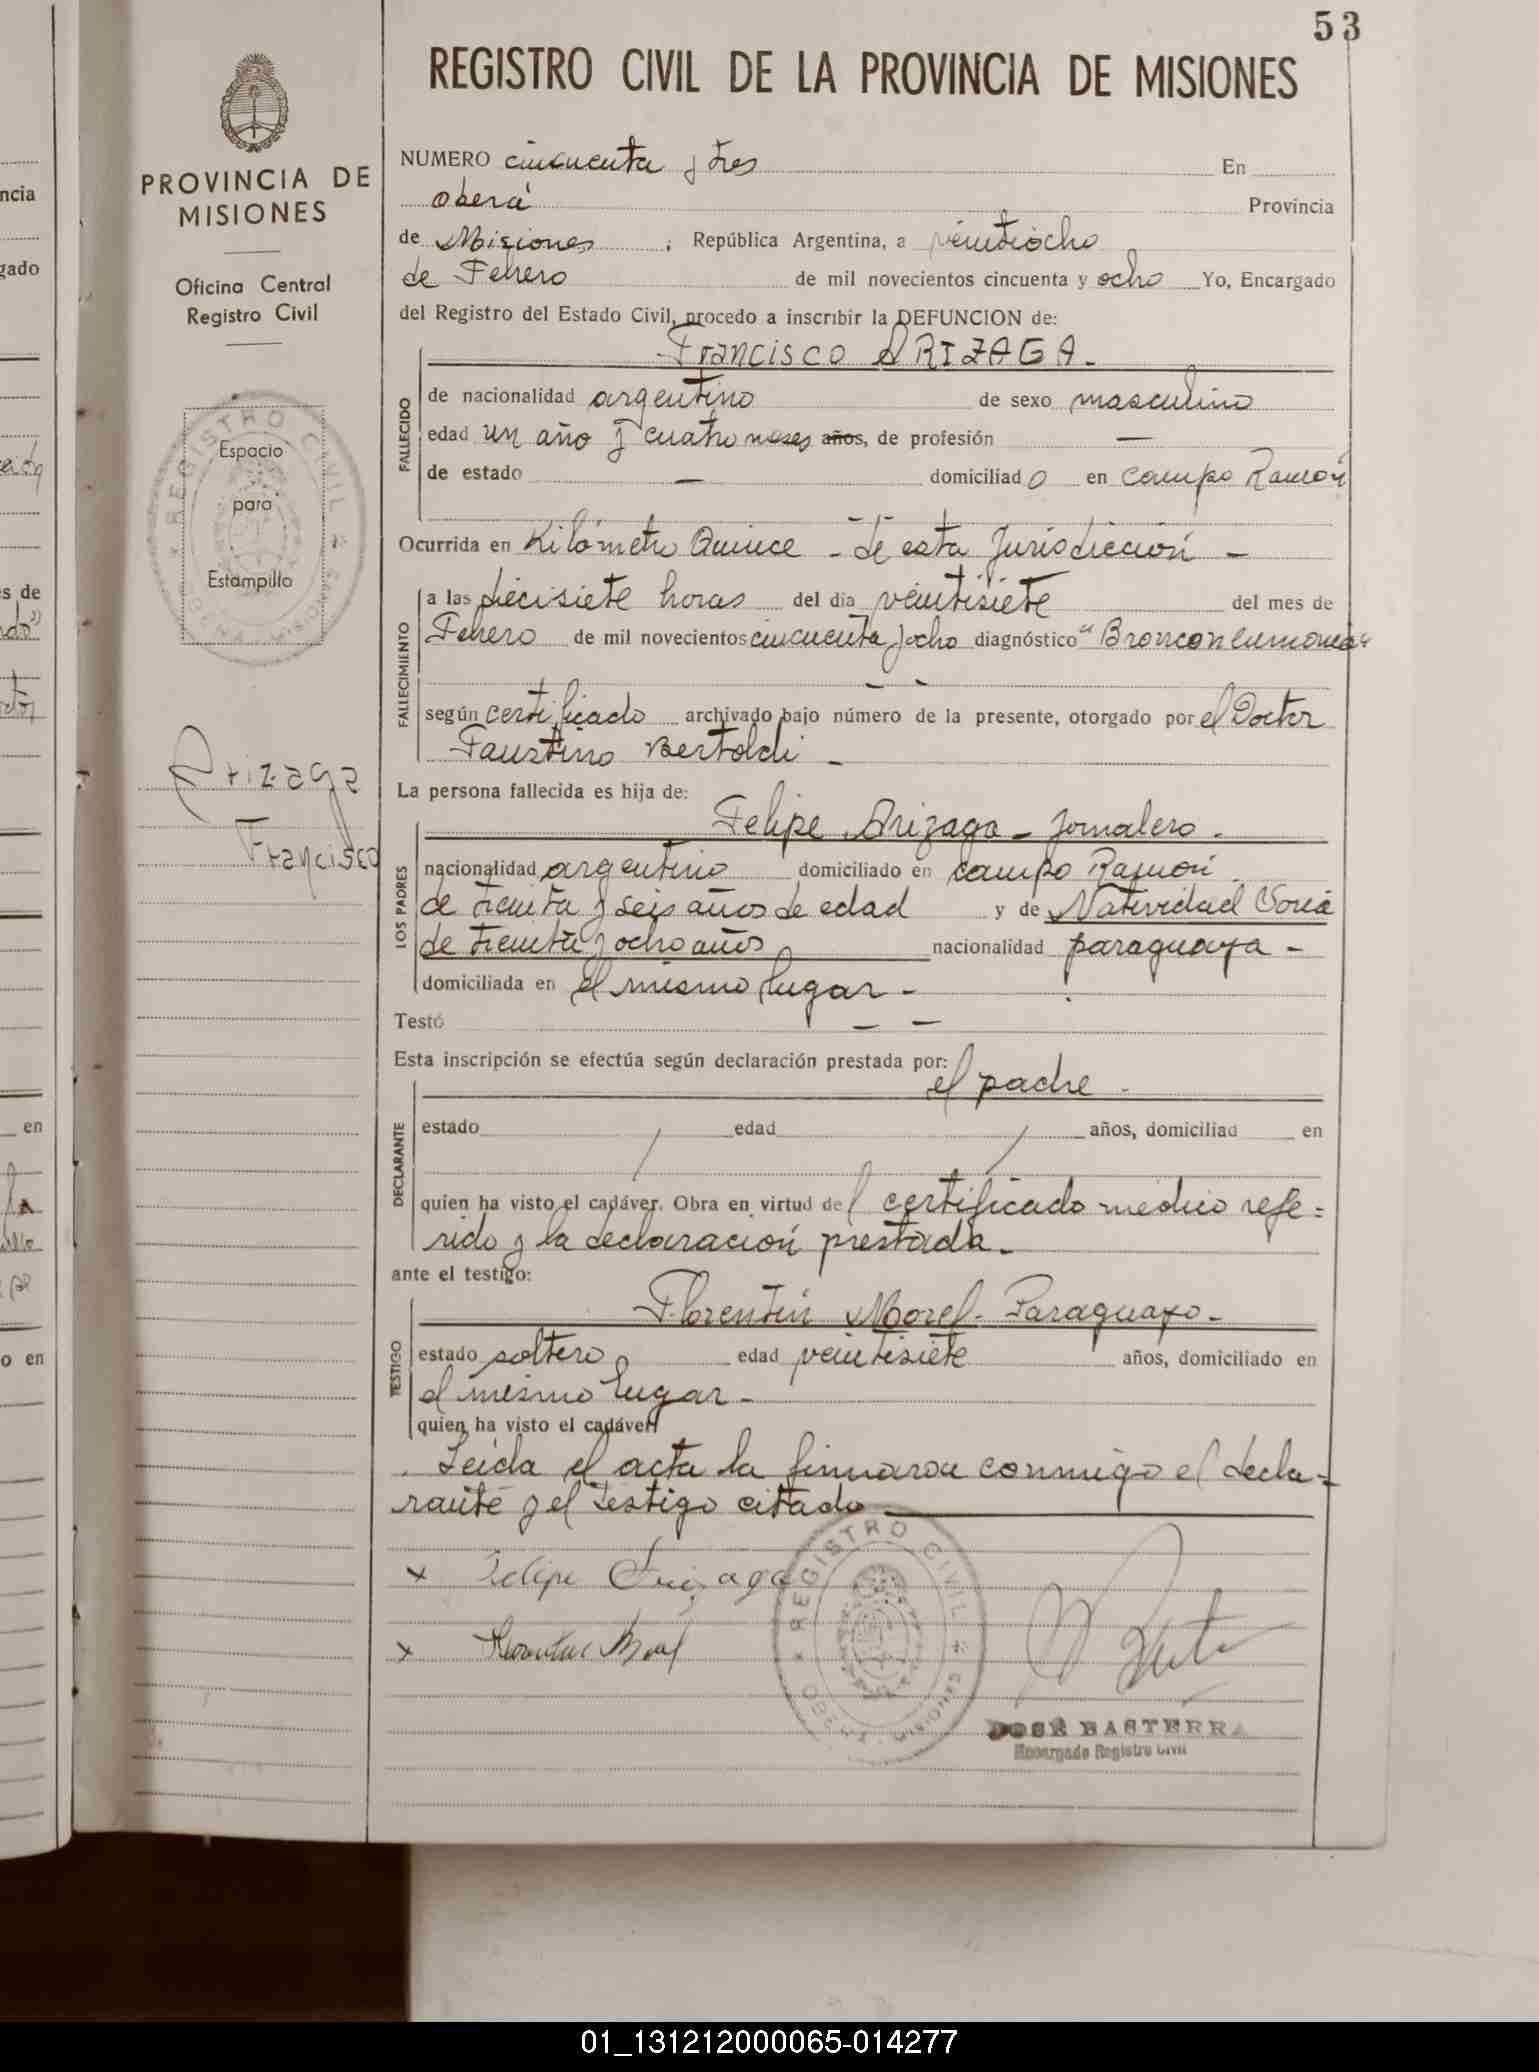 53
REGISTRO CIVIL DE LA PROVINCIA DE MISIONES
PROVINCIA DE
MISIONES
Oficina Central
Registro Civil
REGISTRO CIVIL
Espacio
para
Estampilla
Arizaga
Francisco
NUMERO cincuenta y tres En
Oberá Provincia
de Misiones, República Argentina, a veintiocho
de Febrero de mil novecientos cincuenta y ocho Yo, Encargado
del Registro del Estado Civil, procedo a inscribir la DEFUNCION de:
Francisco ARIZAGA -
FALLECIDO
de nacionalidad argentino de sexo masculino
edad un año y cuatro meses años, de profesión —
de estado — domiciliado en campo Ramón
Ocurrida en Kilómetro Quince - de esta Jurisdicción -
FALLECIMIENTO
a las diecisiete horas del día veintisiete del mes de
Febrero de mil novecientos cincuenta y ocho diagnóstico "Bronconeumonia"
según certificado archivado bajo número de la presente, otorgado por el Doctor
Faustino Bertoldi -
La persona fallecida es hija de:
LOS PADRES
Felipe Arizaga - Jornalero -
nacionalidad argentino domiciliado en campo Ramón
de treinta y seis años de edad y de Natividad Soria
de treinta y ocho años nacionalidad paraguaya -
domiciliada en el mismo lugar -
Testó — —
Esta inscripción se efectúa según declaración prestada por:
el padre -
DECLARANTE
estado / edad / años, domiciliad en
quien ha visto el cadáver. Obra en virtud del certificado médico refe=
rido y la declaración prestada -
ante el testigo:
TESTIGO
Florentín Morel - Paraguayo -
estado soltero edad veintisiete años, domiciliado en
el mismo lugar -
quien ha visto el cadáver
Leída el acta la firmaron conmigo el decla=
rante y el testigo citado
x Felipe Arizaga
x Florentin Morel
REGISTRO CIVIL
JOSÉ BASTERRA
Encargado Registro Civil
01_131212000065-014277